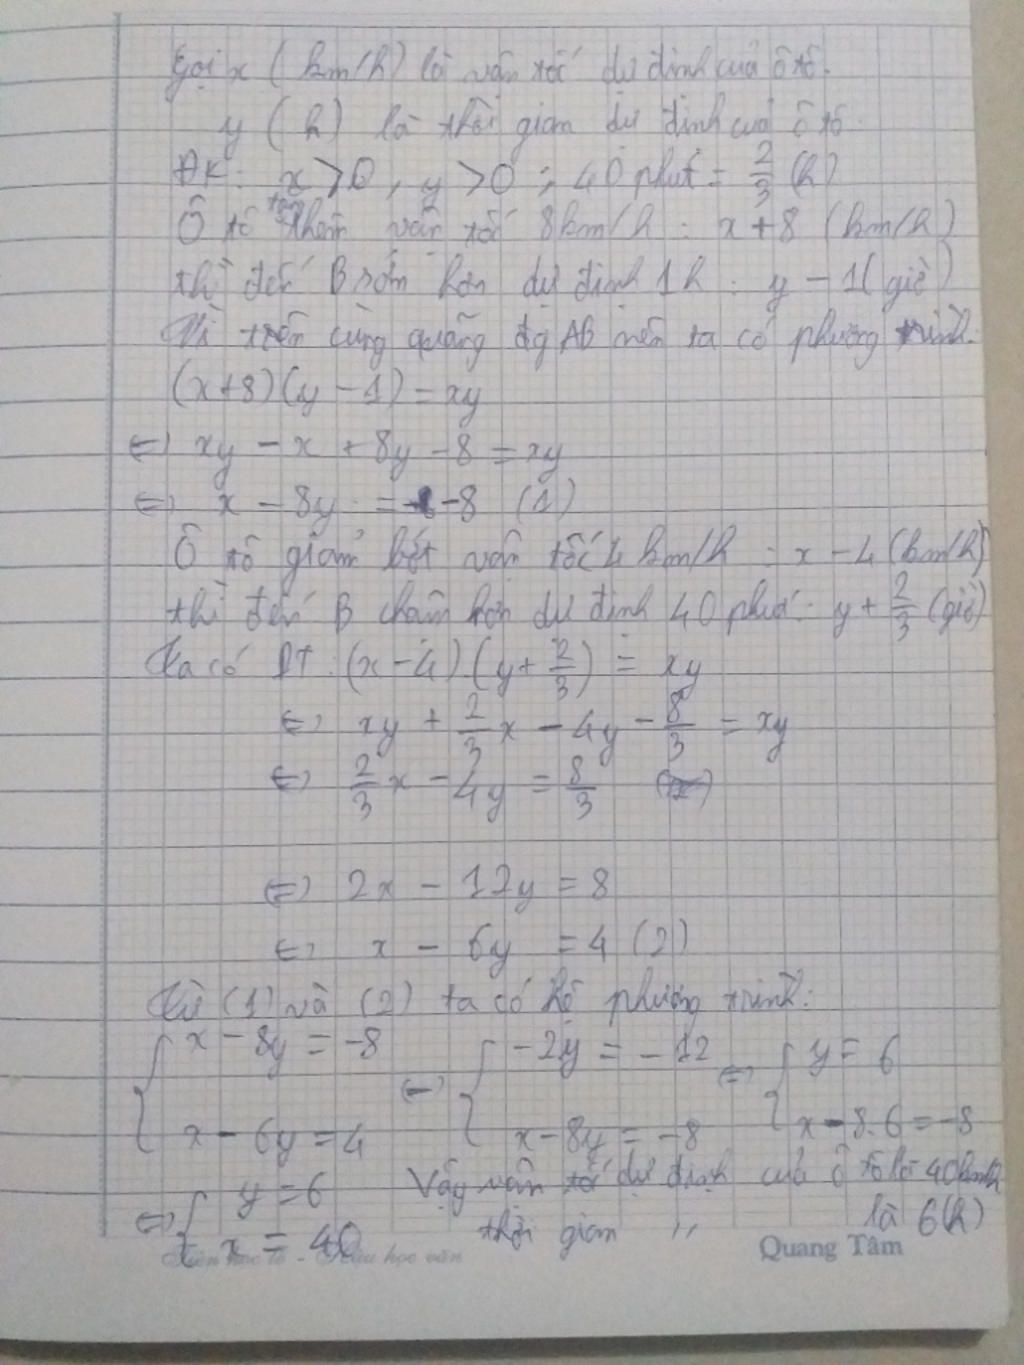 Gọi x (km/h) là vận tốc dự định của ô tô.
y (h) là thời gian dự định của ô tô.
ĐK: x > 0, y > 0 ; 40 phút = 2/3 (h)
Ô tô tăng thêm vận tốc 8km/h : x + 8 (km/h)
thì đến B sớm hơn dự định 1h : y - 1 (giờ)
Vì trên cùng quãng đg AB nên ta có phương trình:
(x+8)(y - 1) = xy
⇔ xy - x + 8y - 8 = xy
⇔ x - 8y = -8 (1)
Ô tô giảm bớt vận tốc 4 km/h : x - 4 (km/h)
thì đến B chậm hơn dự định 40 phút : y + 2/3 (giờ)
Ta có PT : (x - 4)(y + 2/3) = xy
⇔ xy + 2/3 x - 4y - 8/3 = xy
⇔ 2/3 x - 4y = 8/3
⇔ 2x - 12y = 8
⇔ x - 6y = 4 (2)
Từ (1) và (2) ta có hệ phương trình:
{ x - 8y = -8 ⇔ { -2y = -12 ⇔ { y = 6
x - 6y = 4 x - 8y = -8 x - 8.6 = -8
⇔ { y = 6 Vậy vận tốc dự định của ô tô là 40km/h
x = 40 thời gian " là 6(h)
Quang Tâm